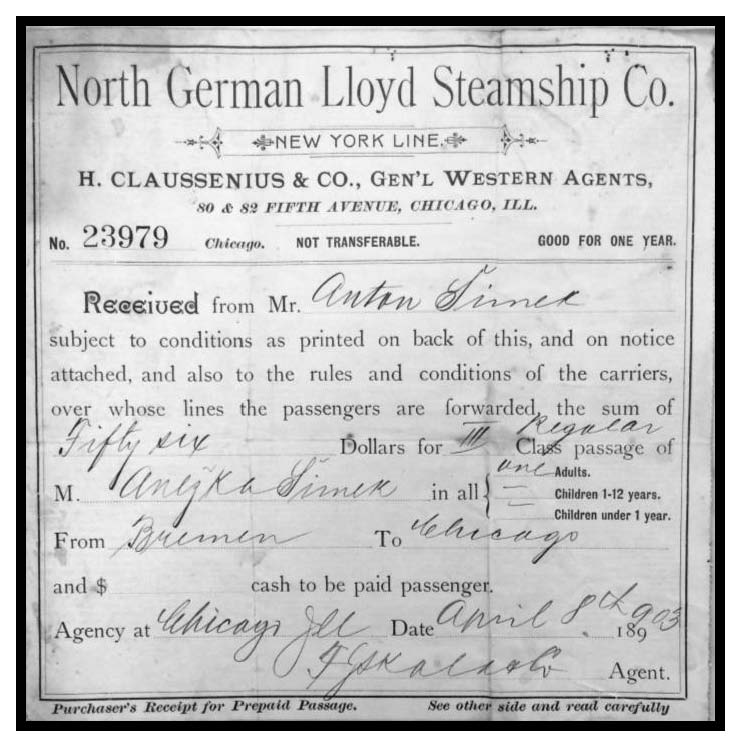 North German Lloyd Steamship Co.
NEW YORK LINE.
H. CLAUSSENIUS & CO., GEN'L WESTERN AGENTS,
80 & 82 FIFTH AVENUE, CHICAGO, ILL.
No. 23979 Chicago. NOT TRANSFERABLE. GOOD FOR ONE YEAR.
Received from Mr. Anton Šimek
subject to conditions as printed on back of this, and on notice
attached, and also to the rules and conditions of the carriers,
over whose lines the passengers are forwarded, the sum of
Fifty six Dollars for III Regular Class passage of
M. Anežka Šimek in all { one Adults.
Children 1-12 years.
Children under 1 year.
From Bremen To Chicago
and $ cash to be paid passenger.
Agency at Chicago Ill Date April 8th 1903
Agent.
Purchaser's Receipt for Prepaid Passage. See other side and read carefully